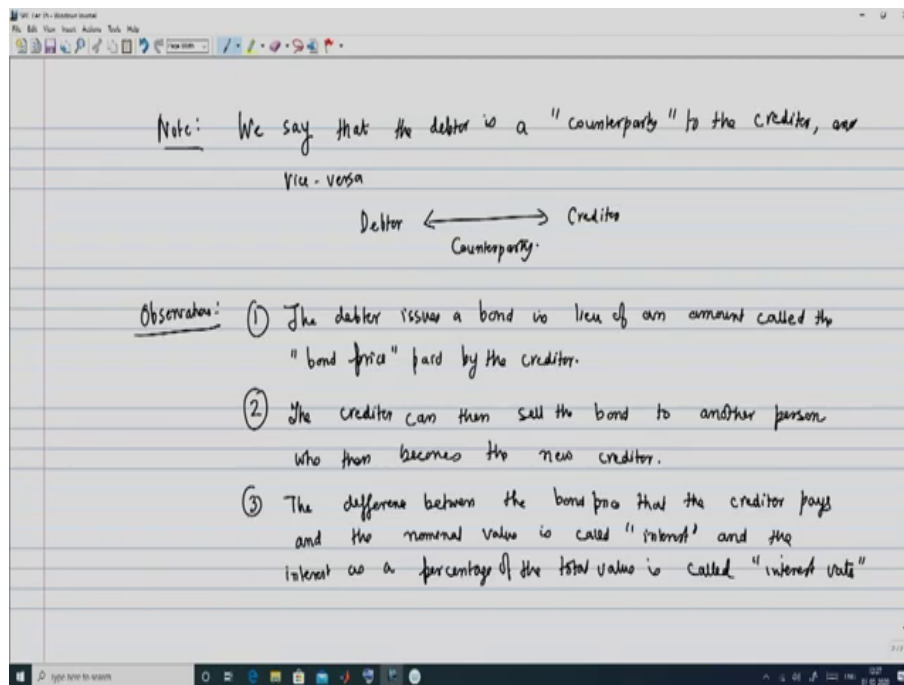 File Edit View Insert Actions Tools Help
Page Width
Note: We say that the debtor is a "counterparty" to the creditor, and
vice-versa
Debtor Creditor
Counterparty.
Observations: ① The debtor issues a bond in lieu of an amount called the
"bond price" paid by the creditor.
② The creditor can then sell the bond to another person
who then becomes the new creditor.
③ The difference between the bond price that the creditor pays
and the nominal value is called "interest" and the
interest as a percentage of the total value is called "interest rate"
Type here to search
12:27